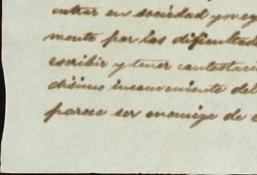 entrar en sociedad y neg
mente por las dificultad
escribir y tener contestaci
disimo inconveniente del
parece ser enemiga de